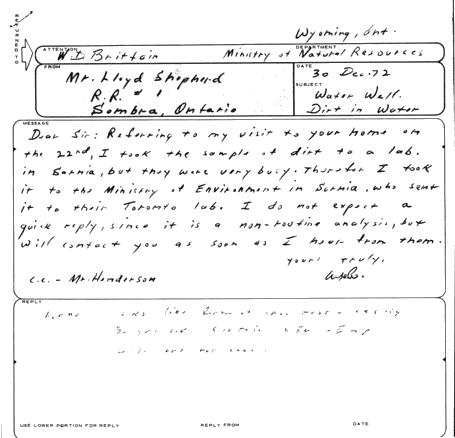 Wyoming, Ont.
ATTENTION
W D Brittain
DEPARTMENT
Ministry of Natural Resources
FROM
Mr. Lloyd Shepherd
R.R. # 1
Sombra, Ontario
DATE
30 Dec. 72
SUBJECT
Water Well.
Dirt in Water
MESSAGE
Dear Sir: Referring to my visit to your home on
the 22nd, I took the sample of dirt to a lab.
in Sarnia, but they were very busy. Therefor I took
it to the Ministry of Environment in Sarnia, who sent
it to their Toronto lab. I do not expect a
quick reply, since it is a non-routine analysis, but
will contact you as soon as I hear from them.
yours truly,
c.c. - Mr. Henderson
REPLY
USE LOWER PORTION FOR REPLY
REPLY FROM
DATE